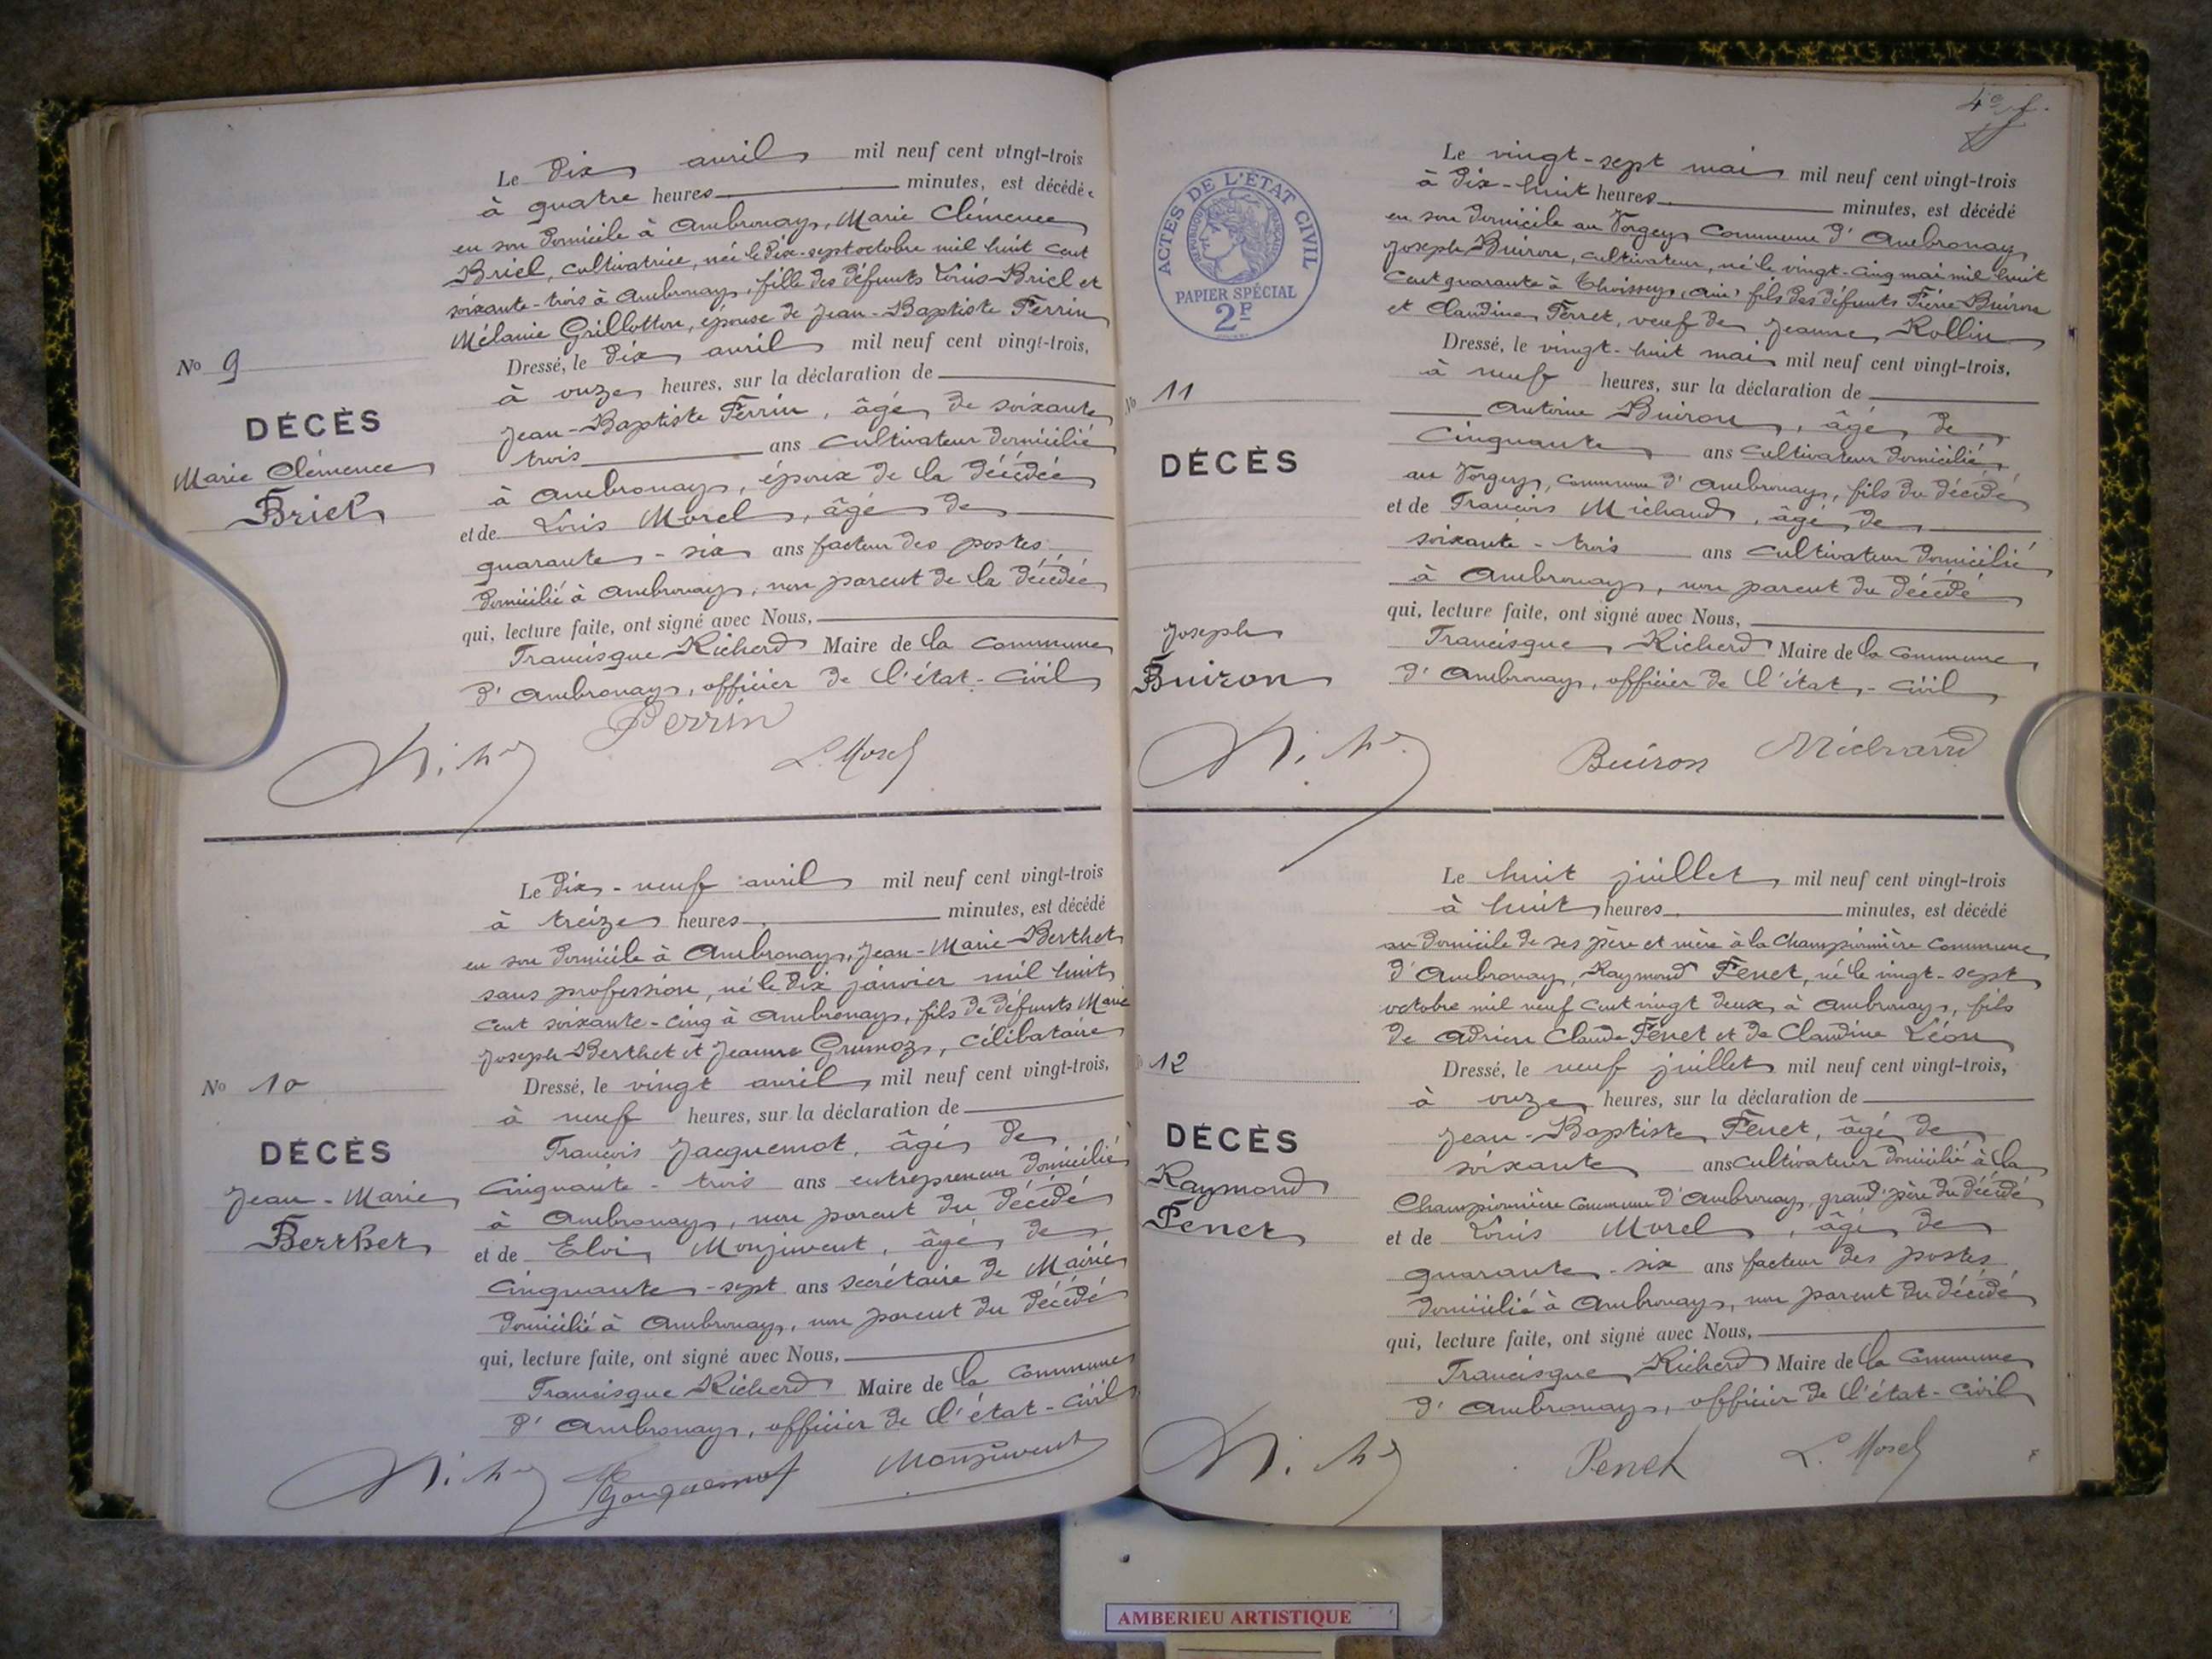 Le dix avril mil neuf cent vingt-trois
à quatre heures minutes, est décédée
en son domicile à Ambronay, Marie Clémence
Briel, cultivatrice, née le dix-sept octobre mil huit cent
soixante-trois à Ambronay, fille des défunts Louis Briel et
Mélanie Grillotton, épouse de Jean-Baptiste Perrin
Dressé, le dix avril mil neuf cent vingt-trois,
à onze heures, sur la déclaration de
Jean-Baptiste Perrin, âgé de soixante
trois ans cultivateur domicilié
à Ambronay, époux de la décédée
et de Louis Morel, âgé de
quarante-six ans facteur des postes
domicilié à Ambronay, non parent de la décédée
qui, lecture faite, ont signé avec Nous,
Francisque Richerd Maire de la commune
d'Ambronay, officier de l'état-civil
No 9
DÉCÈS
Marie Clémence
Briel
Perrin
L. Morel
Le dix-neuf avril mil neuf cent vingt-trois
à treize heures minutes, est décédé
en son domicile à Ambronay, Jean-Marie Berthet
sans profession, né le dix janvier mil huit
cent soixante-cinq à Ambronay, fils de défunts Marie
Joseph Berthet et Jeanne Grumoz, célibataire
Dressé, le vingt avril mil neuf cent vingt-trois,
à neuf heures, sur la déclaration de
François Jacquemot, âgé de
cinquante-trois ans entrepreneur domicilié
à Ambronay, non parent du décédé
et de Eloi Monjuvent, âgé de
cinquante-sept ans secrétaire de Mairie
domicilié à Ambronay, non parent du décédé
qui, lecture faite, ont signé avec Nous,
Francisque Richerd Maire de la commune
d'Ambronay, officier de l'état-civil
No 10
DÉCÈS
Jean-Marie
Berthet
Monjuvent
4e f.
ACTES DE L'ÉTAT CIVIL
RÉPUBLIQUE FRANÇAISE
PAPIER SPÉCIAL
2F
Le vingt-sept mai mil neuf cent vingt-trois
à dix-huit heures minutes, est décédé
en son domicile au Vorgey commune d'Ambronay
Joseph Buiron, cultivateur, né le vingt-cinq mai mil huit
cent quarante à Thoissey (Ain) fils des défunts Pierre Buiron
et Claudine Ferret, veuf de Jeanne Rollin
Dressé, le vingt-huit mai mil neuf cent vingt-trois,
à neuf heures, sur la déclaration de
Antoine Buiron, âgé de
cinquante ans cultivateur domicilié
au Vorgey, commune d'Ambronay, fils du décédé
et de François Michaud, âgé de
soixante-trois ans cultivateur domicilié
à Ambronay, non parent du décédé
qui, lecture faite, ont signé avec Nous,
Francisque Richerd Maire de la commune
d'Ambronay, officier de l'état-civil
No 11
DÉCÈS
Joseph
Buiron
Buiron
Michaud
Le huit juillet mil neuf cent vingt-trois
à huit heures minutes, est décédé
au domicile de ses père et mère à la Championnière commune
d'Ambronay, Raymond Penet, né le vingt-sept
octobre mil neuf cent vingt deux à Ambronay, fils
de Adrien Claude Penet et de Claudine Léon
Dressé, le neuf juillet mil neuf cent vingt-trois,
à onze heures, sur la déclaration de
Jean-Baptiste Penet, âgé de
soixante ans cultivateur domicilié à la
Championnière commune d'Ambronay, grand'père du décédé
et de Louis Morel, âgé de
quarante-six ans facteur des postes
domicilié à Ambronay, non parent du décédé
qui, lecture faite, ont signé avec Nous,
Francisque Richerd Maire de la commune
d'Ambronay, officier de l'état-civil
12
DÉCÈS
Raymond
Penet
Penet
L. Morel
AMBERIEU ARTISTIQUE